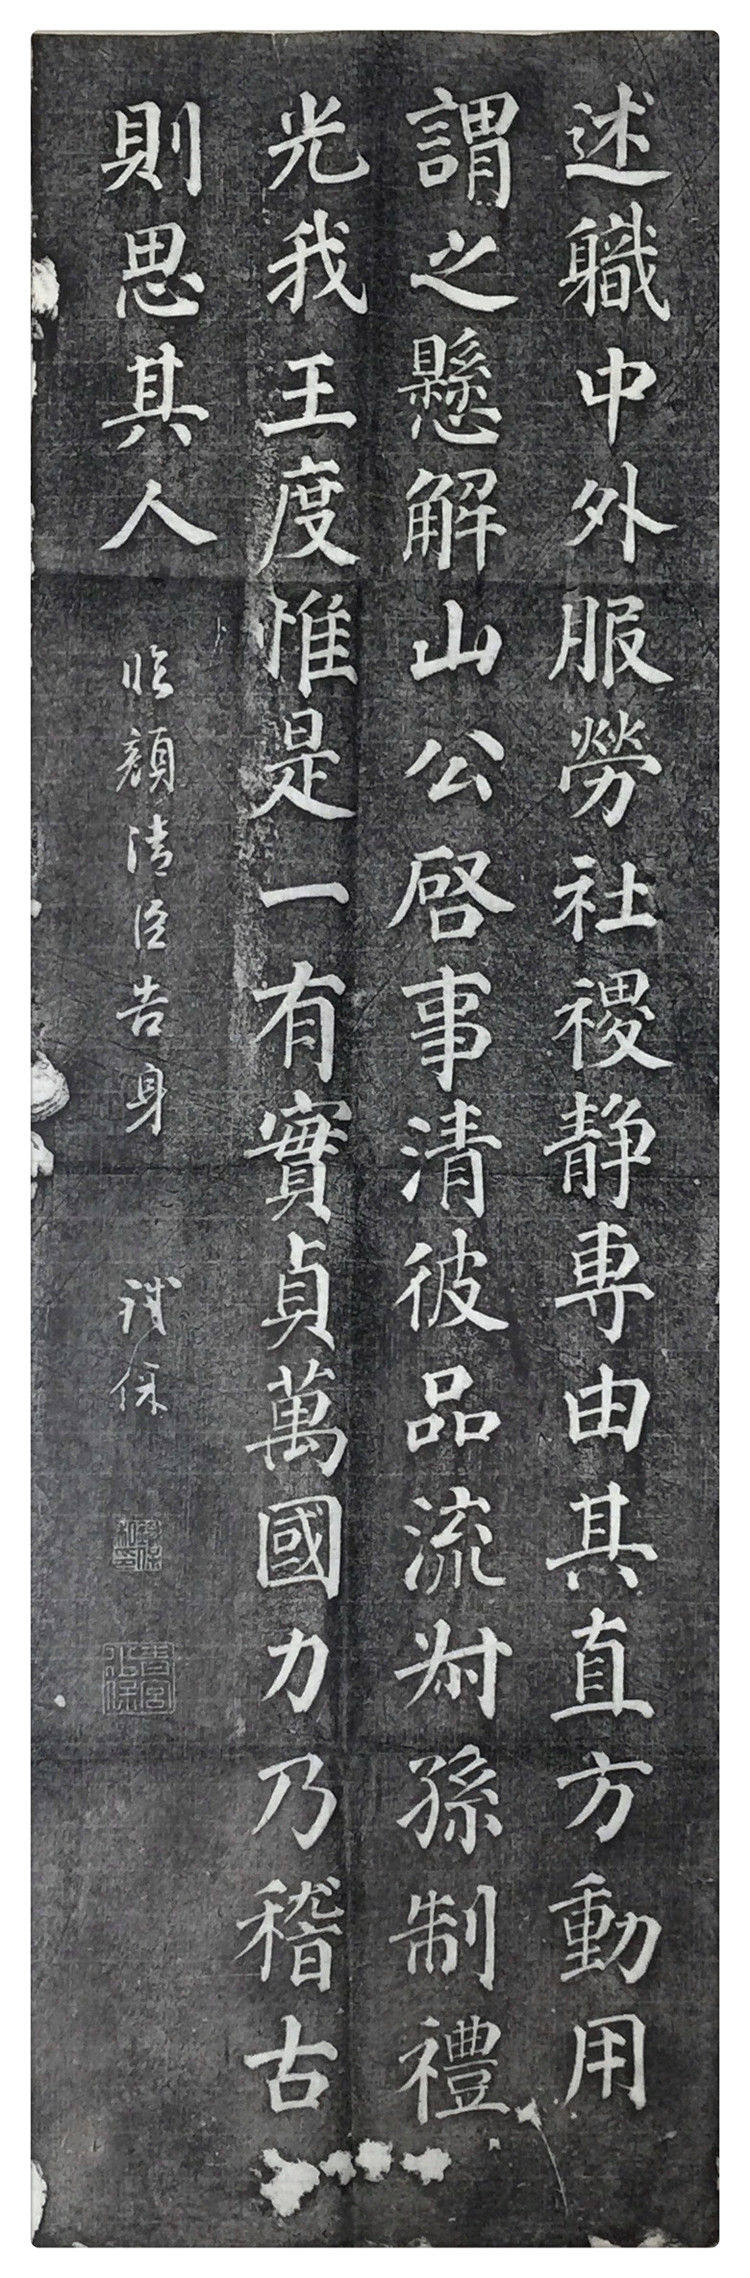 述職中外服勞社稷静專由其直方動用
謂之懸解山公啓事清彼品流叔孫制禮
光我王度惟是一有實貞萬國力乃稽古
則思其人
臨顔清臣告身
鐵保
青宮少保